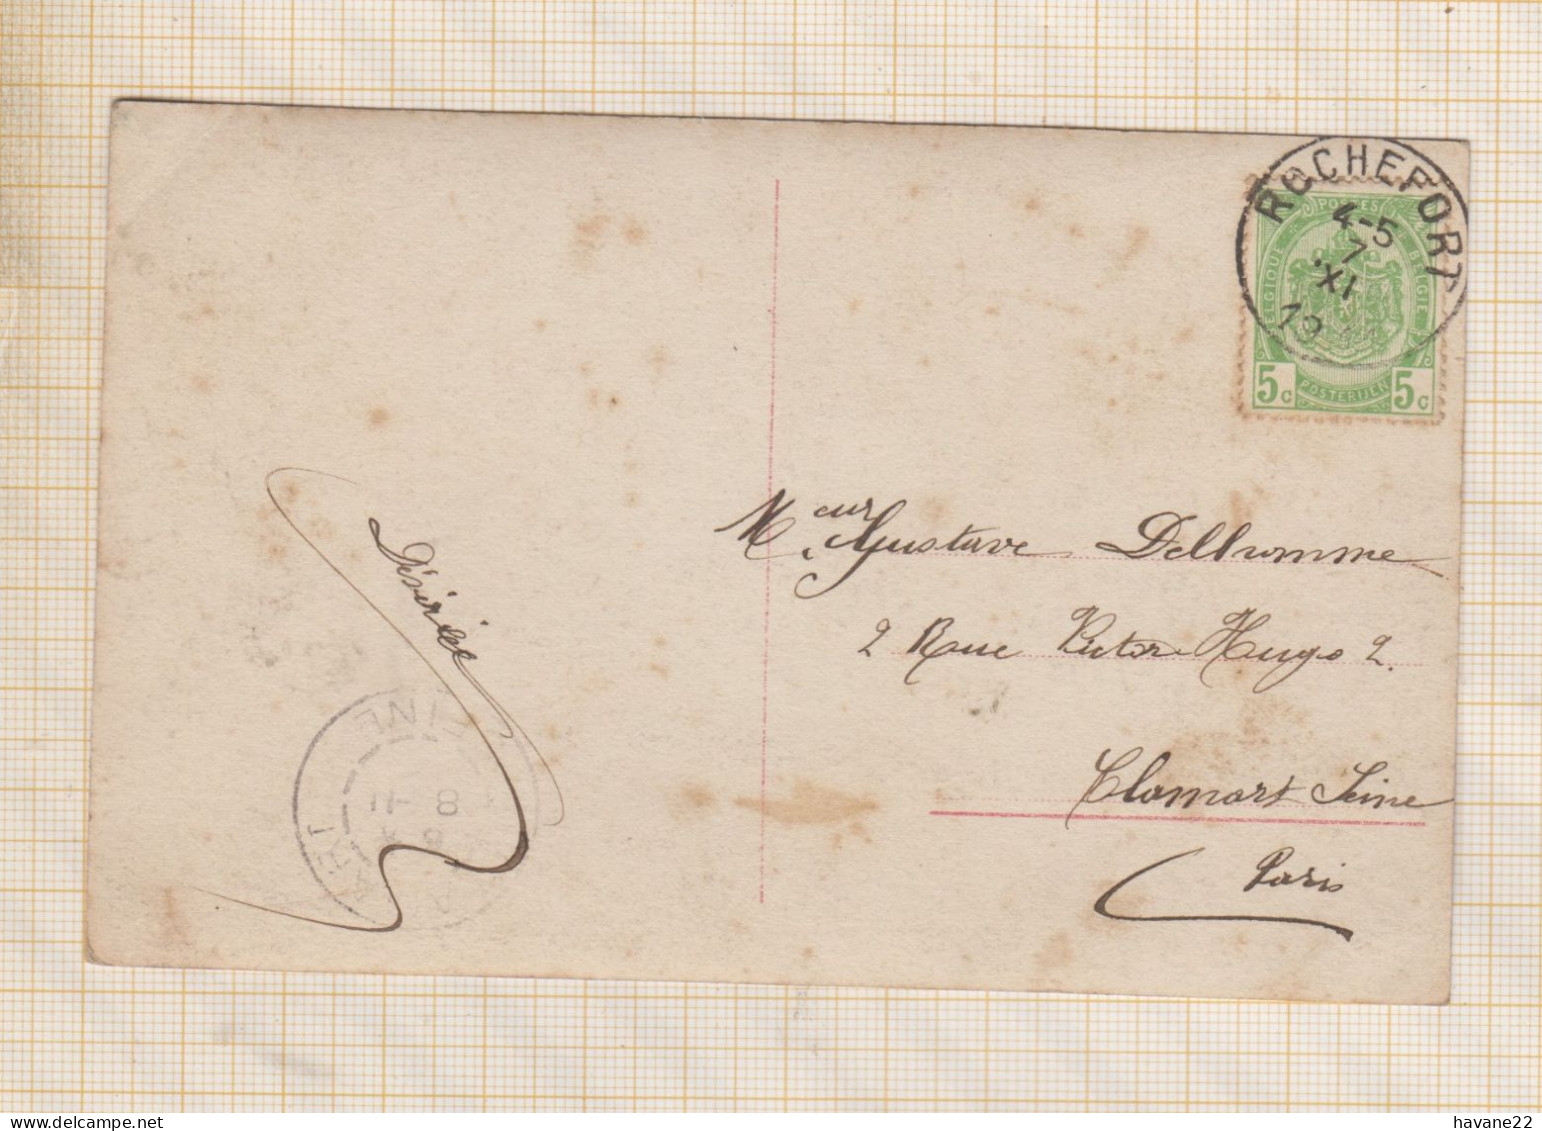 ROCHEFORT
4-5
7
XI
19
POSTES
BELGIQUE BELGIE
5c POSTERIJEN 5c
Meur Gustave Delhomme
2 Rue Victor Hugo 2.
Clamart Seine
Paris
Désirée
SEINE
8
www.delcampe.net
havane22